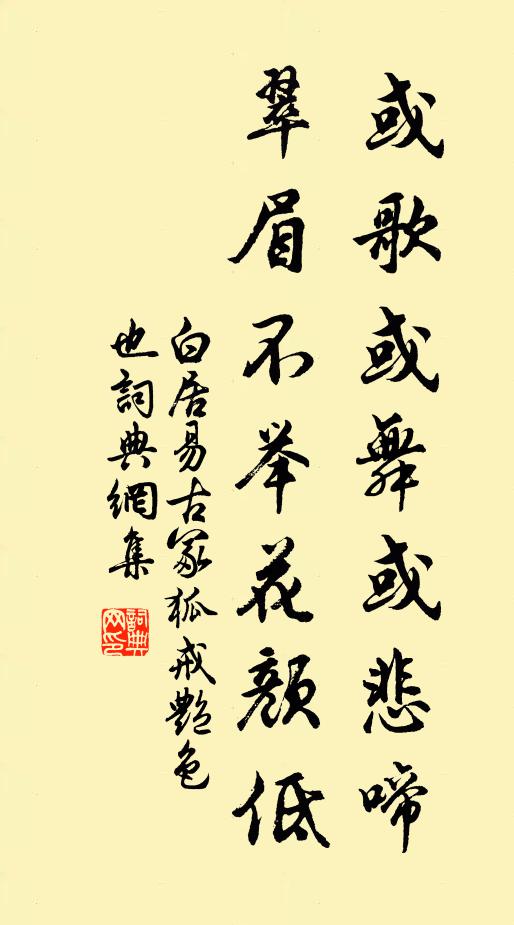 或歌或舞或悲啼
翠眉不举花顏低
白居易古冢狐戒艷色
也詞典網集
詞典网印